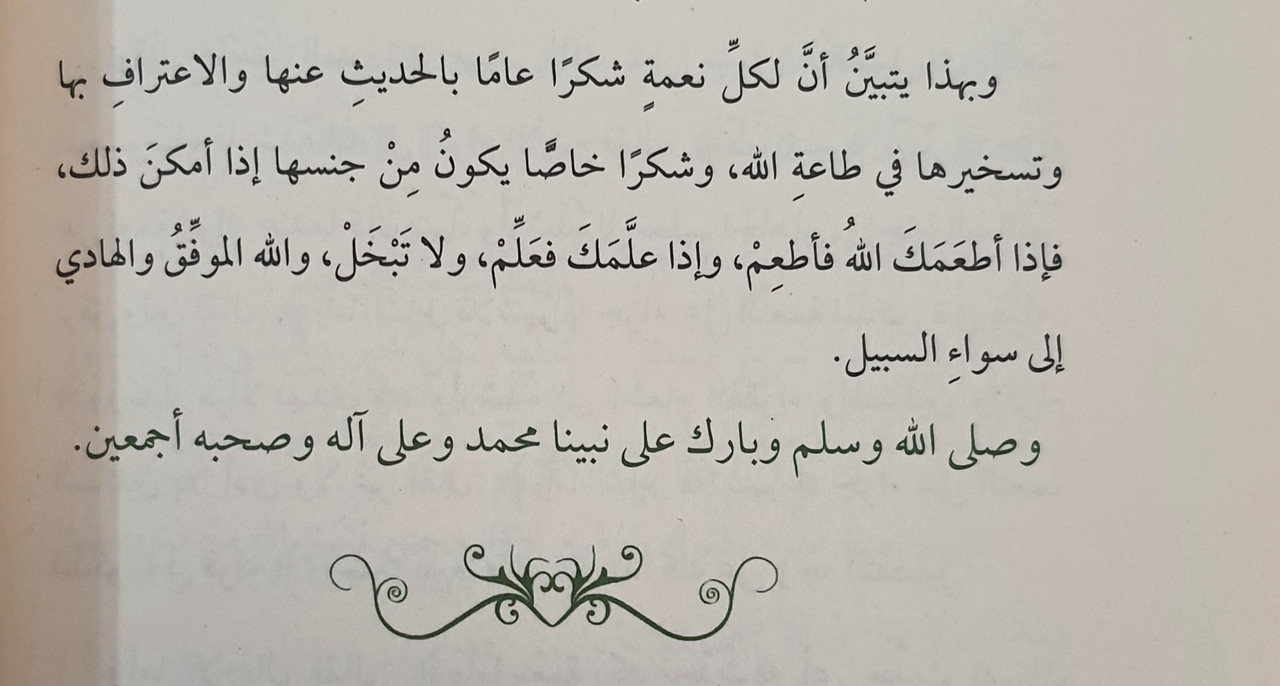 وبهذا يتبيَّنُ أنَّ لكلِّ نعمةٍ شكرًا عامًا بالحديثِ عنها والاعترافِ بها
وتسخيرها في طاعةِ الله، وشكرًا خاصًّا يكونُ مِنْ جنسها إذا أمكنَ ذلك،
فإذا أطعَمَكَ اللهُ فأطعِمْ، وإذا علَّمَكَ فعَلِّمْ، ولا تَبْخَلْ، والله الموفِّقُ والهادي
إلى سواءِ السبيل.
وصلى الله وسلم وبارك على نبينا محمد وعلى آله وصحبه أجمعين.